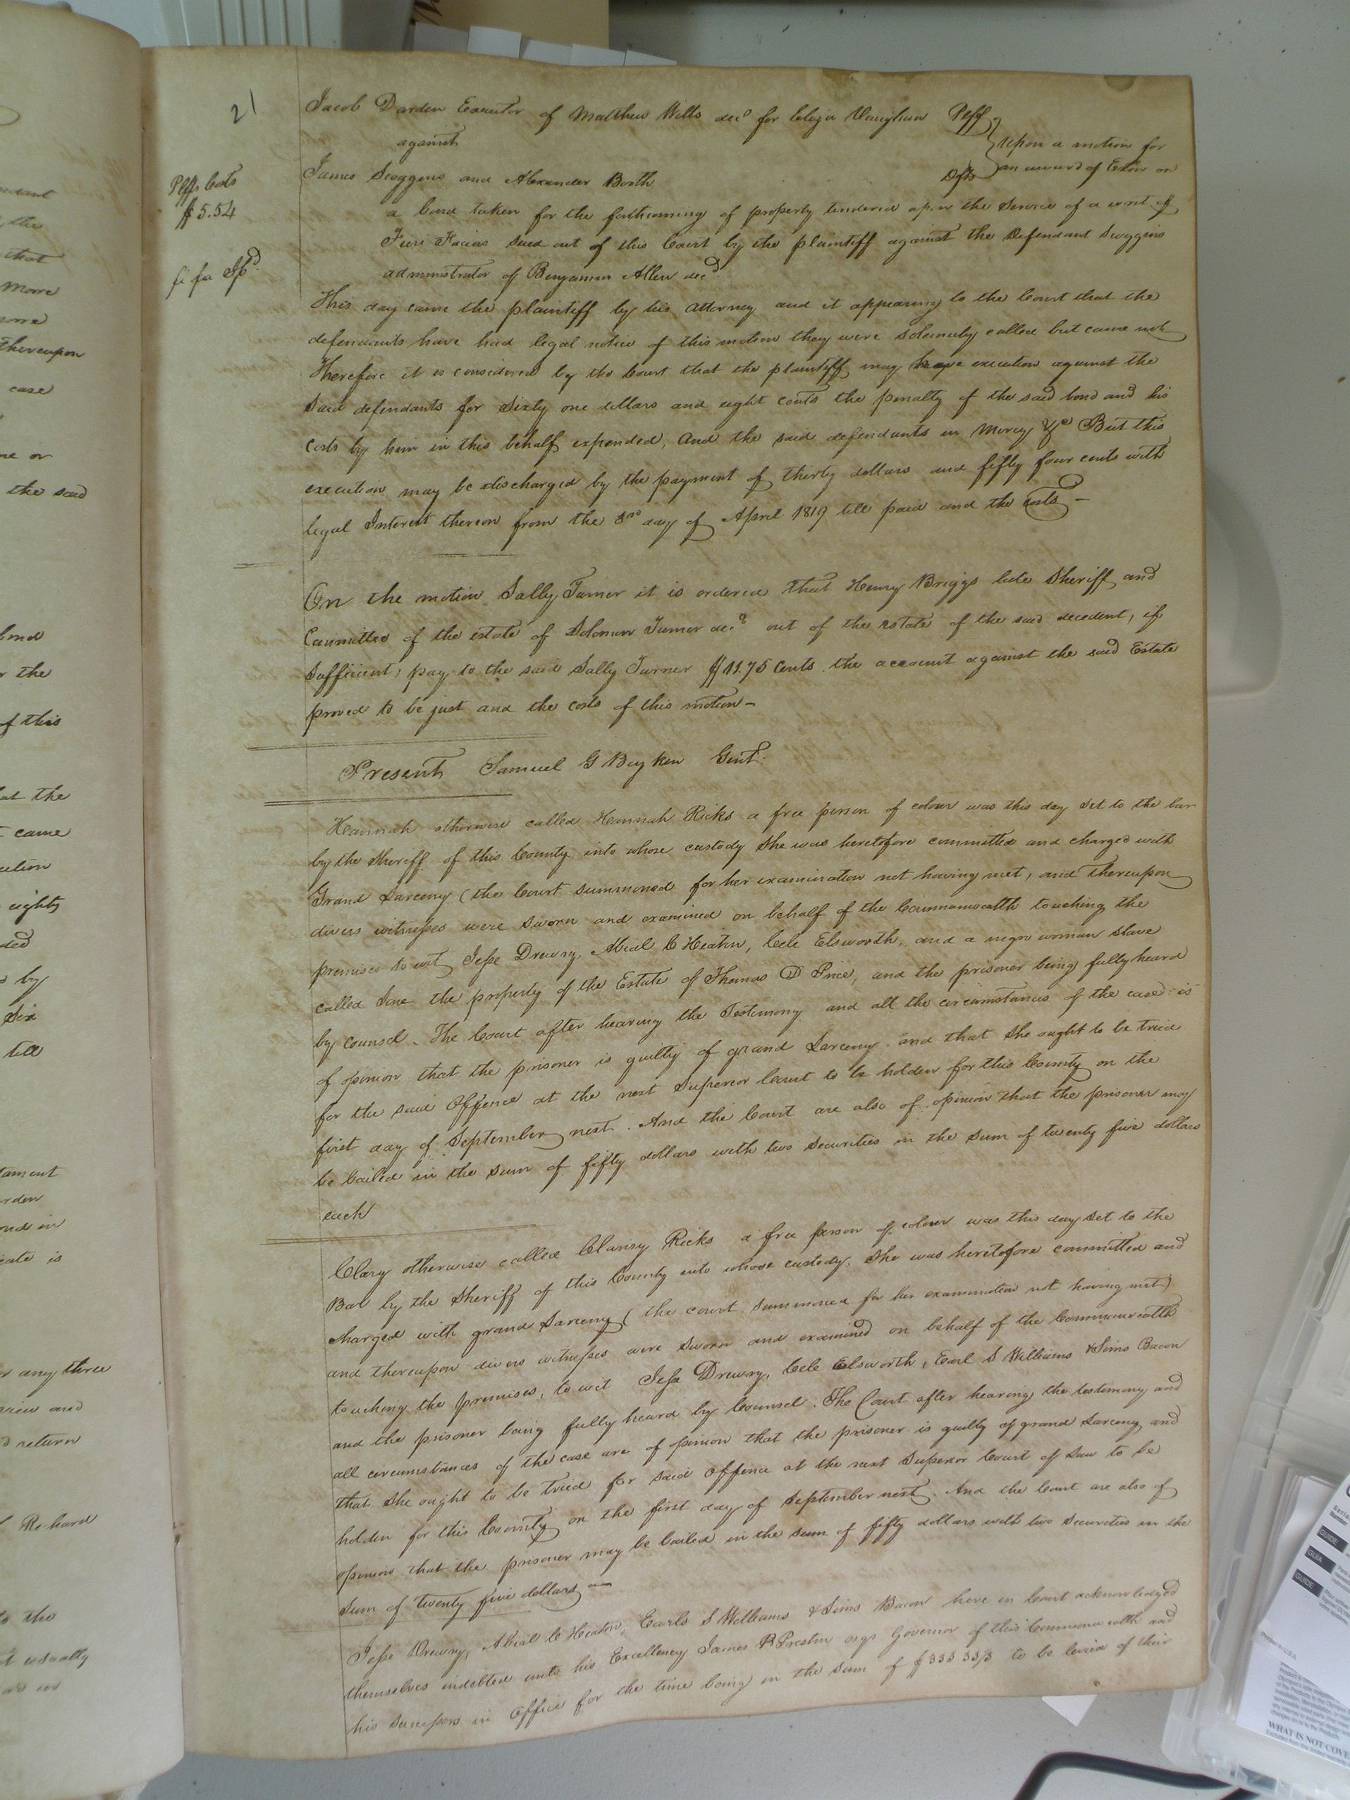 21
Jacob Darden Executor of Matthew Wills decd for Elizan Vaughan Plff
against
upon a motion for
James Scoggins and Alexander Booth Defts
an award of Exōn on
Plffs Costs
$5.54
a bond taken for the forthcoming of property tendered upon the Service of a writ of
Fieri Facias sued out of this Court by the plaintiff against the Defendant Scoggins
fi fa Ipd
administrator of Benjamin Allen decd
This day came the plaintiff by his attorney and it appearing to the Court that the
defendants have had legal notice of this motion they were solemnly called but came not
Therefore it is considered by the Court that the plaintiff may have execution against the
said defendants for Sixty one dollars and eight cents the penalty of the said bond and his
costs by him in this behalf expended, And the said defendants in Mercy &c But this
execution may be discharged by the payment of thirty dollars and fifty four cents with
legal Interest thereon from the 3rd day of April 1819 till paid and the costs –
On the motion Sally Turner it is ordered that Henry Briggs late Sheriff and
Committee of the estate of Solomon Turner decd out of the estate of the said decedent, if
Sufficient, pay to the said Sally Turner $11.75 Cents the account against the said Estate
proved to be just and the costs of this motion –
Present Samuel G Boyken Gent.
Hannah otherwise called Hannah Ricks a free person of colour was this day Set to the bar
by the Sheriff of this County into whose custody She was heretofore committed and charged with
Grand Larceny (the Court summoned for her examination not having met, and thereupon
divers witnesses were sworn and examined on behalf of the Commonwealth touching the
premises to wit Jesse Drewry, Abial C Heath, Cele Elsworth, and a negro woman slave
called Jane the property of the Estate of Thomas D Price, and the prisoner being fully heard
by counsel. The Court after hearing the Testimony and all the circumstances of the case is
of opinion that the prisoner is guilty of grand Larceny and that She ought to be tried
for the said Offence at the next Superior Court to be holden for this County on the
first day of September next. And the Court are also of opinion that the prisoner may
be bailed in the sum of fifty dollars with two Securities in the sum of twenty five dollars
each
Clary otherwise called Clarisy Ricks a free person of colour was this day Set to the
Bar by the Sheriff of this County into whose custody She was heretofore committed and
charged with grand Larceny (the court summoned for her examination not having met)
and thereupon divers witnesses were sworn and examined on behalf of the Commonwealth
touching the premises, to wit Jesse Drewry, Cele Elsworth, Earl S Williams & Sims Bacon
and the prisoner being fully heard by Counsel. The Court after hearing the testimony and
all circumstances of the case are of opinion that the prisoner is guilty of grand Larceny and
that She ought to be tried for said offence at the next Superior Court of Law to be
holden for this County on the first day of September next. And the Court are also of
opinion that the prisoner may be bailed in the sum of fifty dollars with two Securities in the
sum of twenty five dollars –
Jesse Drewry, Abial C Heath, Earls S Williams & Sims Bacon here in Court acknowledged
themselves indebted unto his Excellency James P. Preston esqr Governor of this Commonwealth and
his successors in Office for the time being in the sum of $333 33/3 to be levied of their